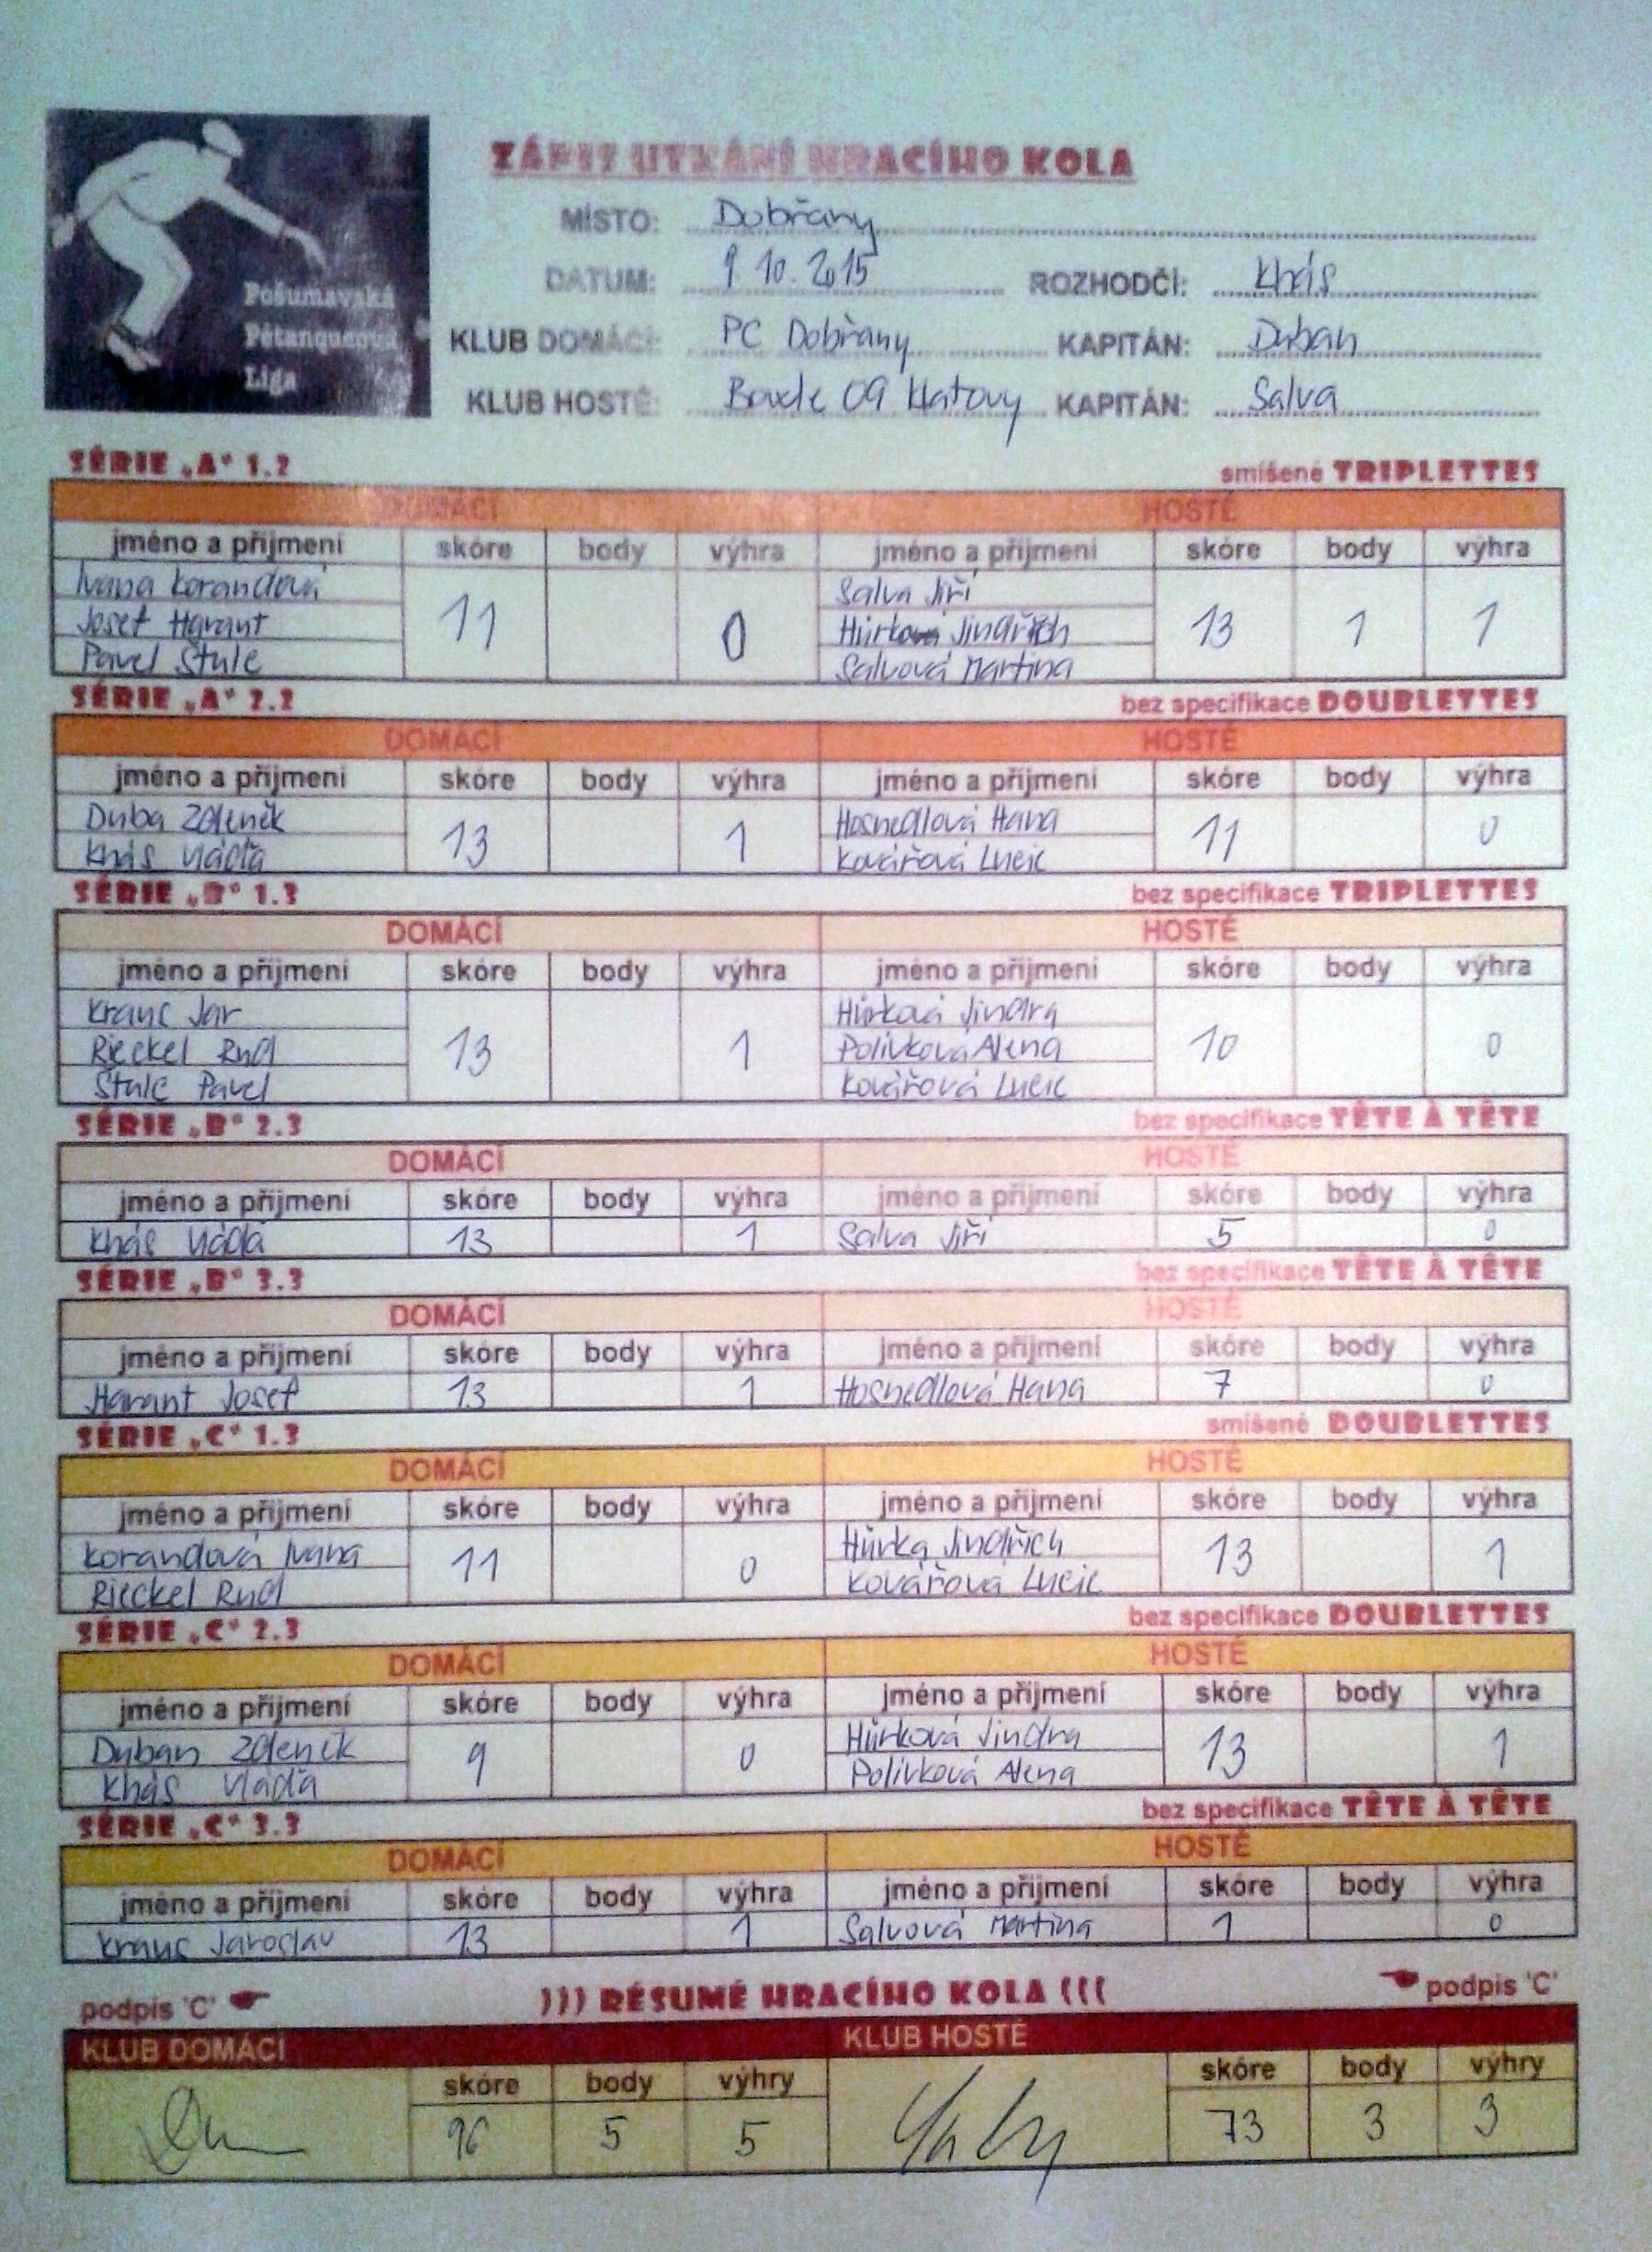 ZÁPIS UTKÁNÍ HRACÍHO KOLA
MÍSTO: Dobřany
DATUM: 9.10.2015 ROZHODČÍ: Khás
KLUB DOMÁCÍ: PC Dobřany KAPITÁN: Duban
KLUB HOSTÉ: Boule 09 Klatovy KAPITÁN: Salva
Pošumavská
Pétanquová
Liga
SÉRIE „A" 1.2 smíšené TRIPLETTES
DOMÁCÍ HOSTÉ
jméno a příjmení skóre body výhra jméno a příjmení skóre body výhra
Ivana Korandová Salva Jiří
Josef Harant 11 0 Hůrka Jindřich 13 1 1
Pavel Štulc Salvová Martina
SÉRIE „A" 2.2 bez specifikace DOUBLETTES
DOMÁCÍ HOSTÉ
jméno a příjmení skóre body výhra jméno a příjmení skóre body výhra
Duba Zdeněk 13 1 Hosnedlová Hana 11 0
Khás Vláďa Kovářová Lucie
SÉRIE „B" 1.3 bez specifikace TRIPLETTES
DOMÁCÍ HOSTÉ
jméno a příjmení skóre body výhra jméno a příjmení skóre body výhra
Kraus Jar Hůrková Jindra
Rieckel Rud 13 1 Polívková Alena 10 0
Štulc Pavel Kovářová Lucie
SÉRIE „B" 2.3 bez specifikace TÊTE À TÊTE
DOMÁCÍ HOSTÉ
jméno a příjmení skóre body výhra jméno a příjmení skóre body výhra
Khás Vláďa 13 1 Salva Jiří 5 0
SÉRIE „B" 3.3 bez specifikace TÊTE À TÊTE
DOMÁCÍ HOSTÉ
jméno a příjmení skóre body výhra jméno a příjmení skóre body výhra
Harant Josef 13 1 Hosnedlová Hana 7 0
SÉRIE „C" 1.3 smíšené DOUBLETTES
DOMÁCÍ HOSTÉ
jméno a příjmení skóre body výhra jméno a příjmení skóre body výhra
Korandová Ivana 11 0 Hůrka Jindřich 13 1
Rieckel Rud Kovářová Lucie
SÉRIE „C" 2.3 bez specifikace DOUBLETTES
DOMÁCÍ HOSTÉ
jméno a příjmení skóre body výhra jméno a příjmení skóre body výhra
Duban Zdeněk 9 0 Hůrková Jindra 13 1
Khás Vláďa Polívková Alena
SÉRIE „C" 3.3 bez specifikace TÊTE À TÊTE
DOMÁCÍ HOSTÉ
jméno a příjmení skóre body výhra jméno a příjmení skóre body výhra
Kraus Jaroslav 13 1 Salvová Martina 1 0
podpis 'C' ))) RÉSUMÉ HRACÍHO KOLA ((( podpis 'C'
KLUB DOMÁCÍ KLUB HOSTÉ
skóre body výhry skóre body výhry
96 5 5 73 3 3